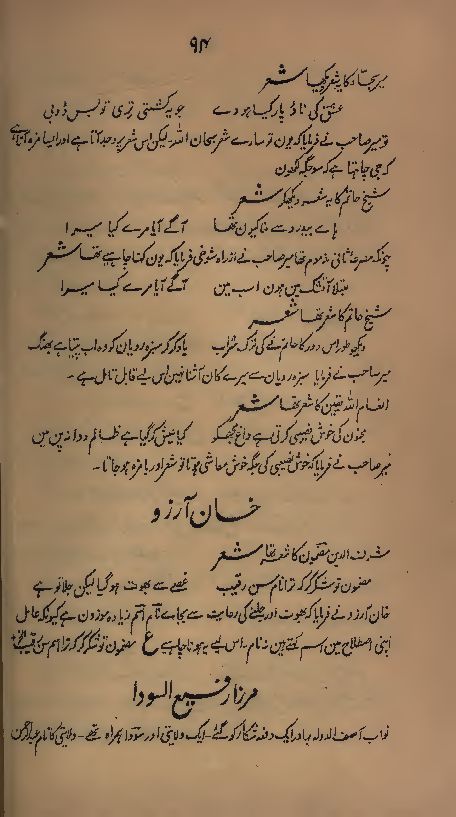 ۹۴
میر سجاد کا یہ شعر دیکھا شعر
عشق کی ناؤ پار کیا ہووے جو یہ کشتی تری تو بس ڈوبی
تو میر صاحب نے فرمایا کہ یوں تو سارے شعر سبحان اللہ۔ لیکن اس شعر پر وجد آتا ہے اور ایسا مزہ آتا ہے
کہ جی چاہتا ہے کہ سو جگہ لکھوں
شیخ حاتم کا یہ شعر دیکھکر شعر
ہاے بیدرد سے ملا کیوں تھا آگے آیا مرے کیا میرا
چونکہ مصرعہ ثانی مذموم تھا میر صاحب نے از راہ شوخی فرمایا کہ یوں کہنا چاہیے تھا شعر
مبتلا آتشک میں ہوں اب میں آگے آیا مرے کیا میرا
شیخ حاتم کا شعر تھا شعر
دیکھو طور اس دور کا حاتم نے کی ترک شراب یاد کر کر سبزہ رویاں کو وہ اب پیتا ہے بھنگ
میر صاحب نے فرمایا سبزہ رویاں سے میرے کان آشنا نہیں اس لیے قابل تامل ہے۔
انعام اللہ یقین کا شعر تھا شعر
مجنوں کی خوش نصیبی کرتی ہے داغ مجھکو کیا عیش کر گیا ہے ظالم دوانہ پن میں
میر صاحب نے فرمایا کہ خوش نصیبی کی جگہ خوش معاشی ہوتا تو شعر اور با مزہ ہو جاتا۔
خان آرزو
شرف الدین مضمون کا شعر تھا شعر
مضمون تو شکر کر کہ ترا نام سن رقیب غصے سے بھوت ہو گیا لیکن جلا تو ہے
خان آرزو نے فرمایا کہ بھوت اور جلنے کی رعایت سے بجاے نام اسم زیادہ موزوں ہے کیونکہ عامل
اپنی اصطلاح میں اسم کہتے ہیں نہ نام۔ اس لیے یہ ہونا چاہیے ع مضمون تو شکر کر کہ ترا اسم سن رقیب الخ
مرزا رفیع السودا
نواب آصف الدولہ بہادر ایک دفعہ شکار کو گئے۔ ایک ولایتی اور سودا ہمراہ تھے۔ ولایتی کا نام